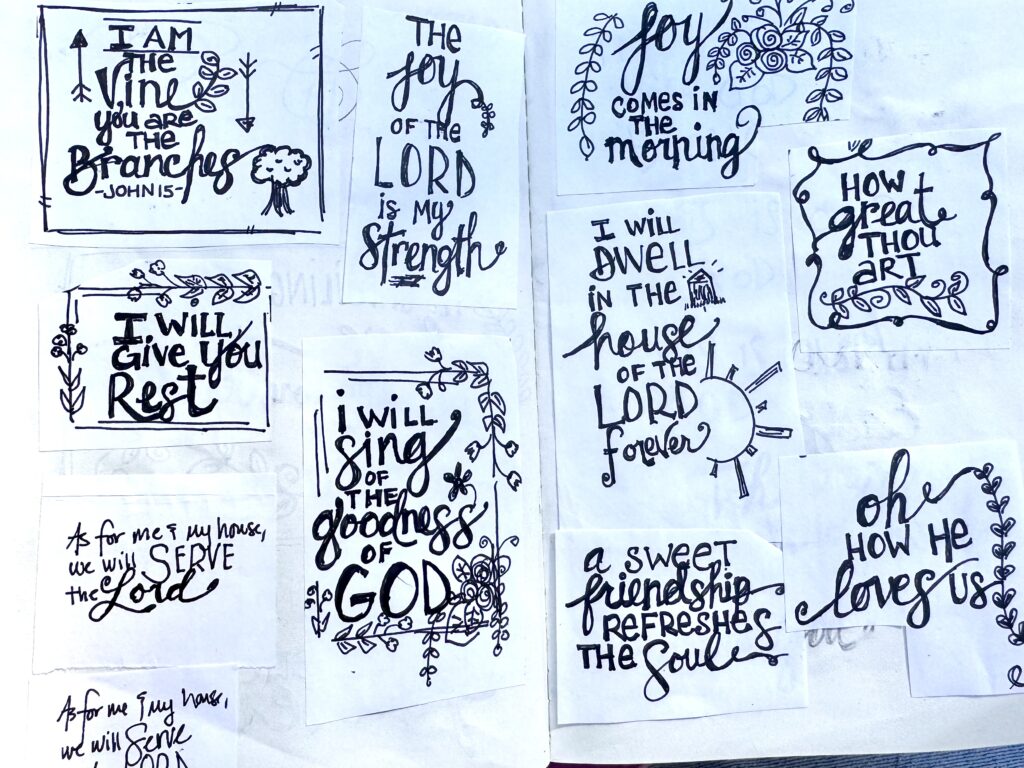 I AM
THE
Vine
you ARE
THE
Branches
-JOHN 15-
THE
joy
OF THE
LORD
is My
Strength
I WILL
Give You
Rest
i WILL
sing
OF
THE
goodness
OF
GOD
As for me & my house,
we will SERVE
the Lord
As for me & my house,
we will Serve
LORD
joy
COMES IN
THE
morning
HOW
great
THOU
ART
I WILL
DWELL
IN THE
house
OF THE
LORD
forever
oh
HOW HE
loves US
a SWEET
friendship
REFRESHES
THE Soul